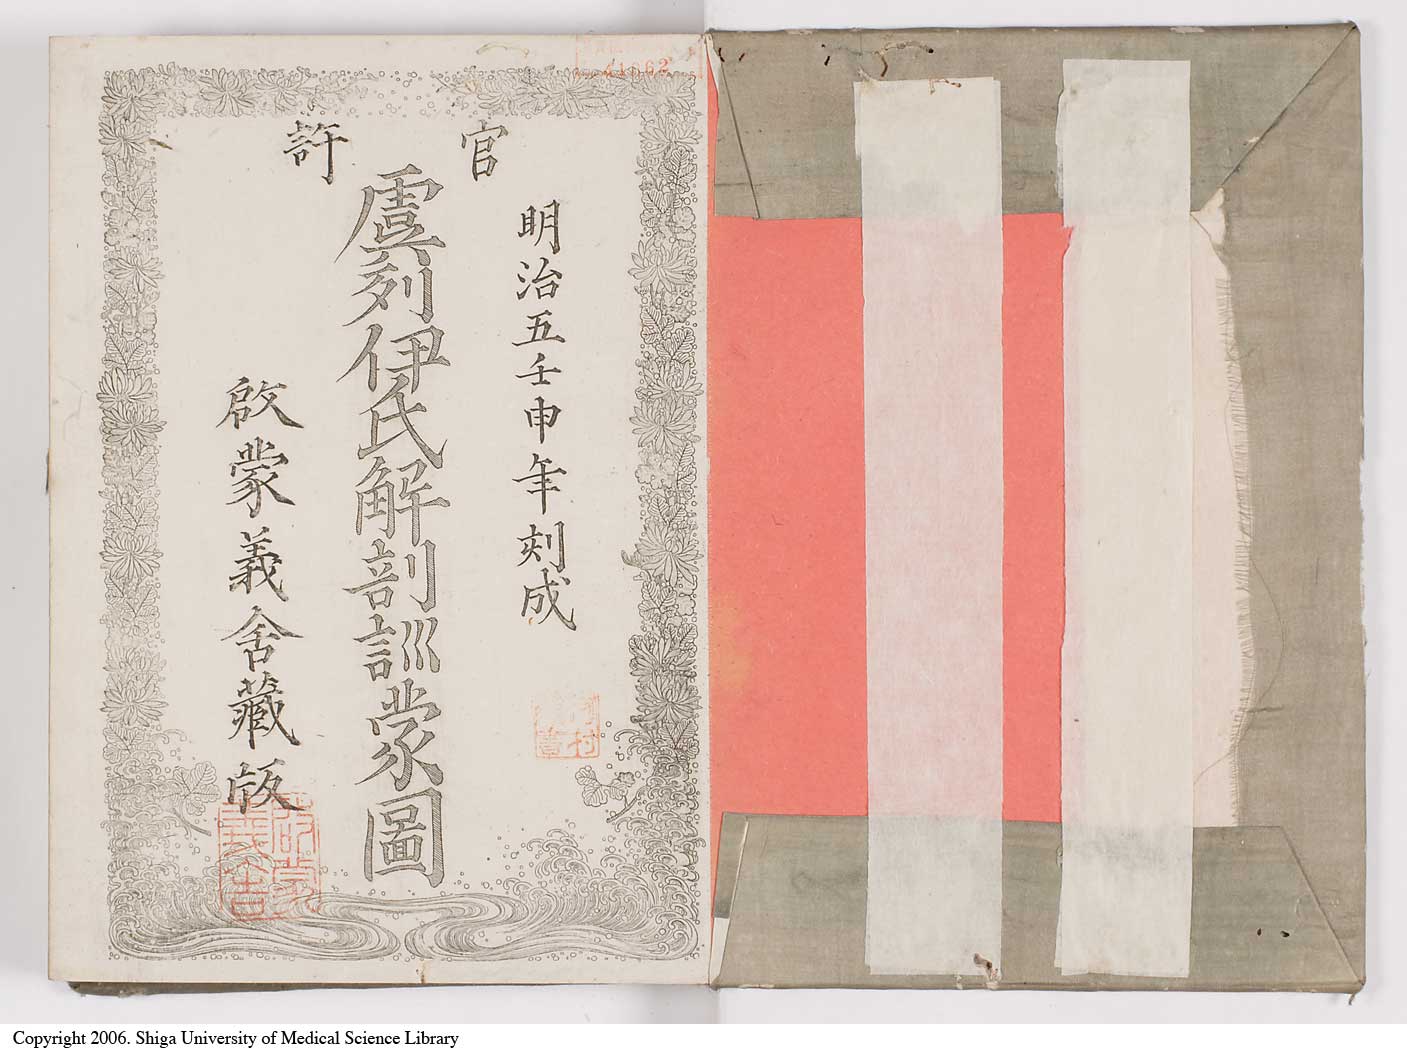 官許
明治五壬申年刻成
虞列伊氏解剖訓蒙圖
啟蒙義舍藏版
啟蒙義舍
Copyright 2006. Shiga University of Medical Science Library